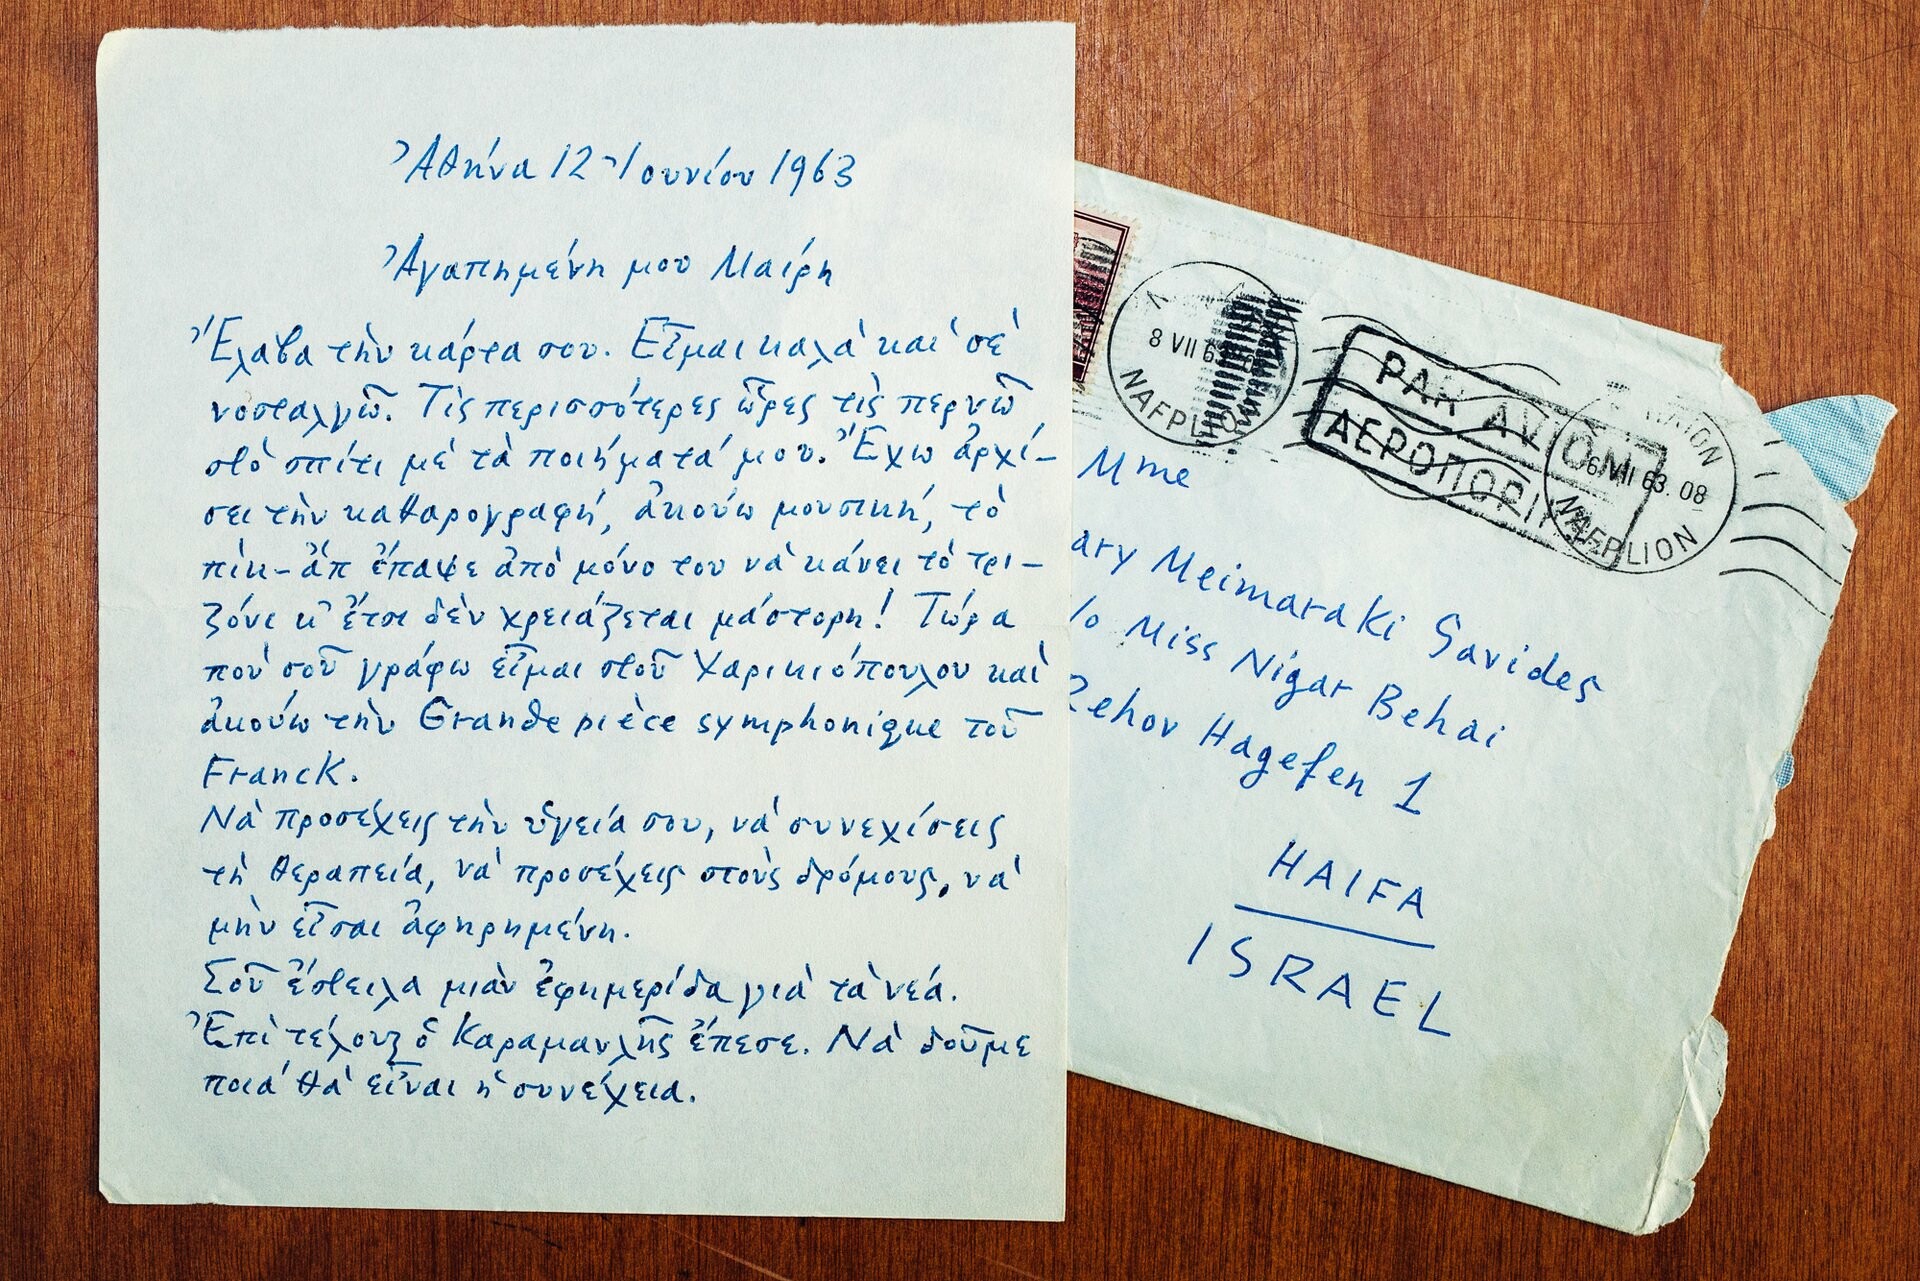 Ἀθήνα 12 Ἰουνίου 1963
Ἀγαπημένη μου Μαίρη
Ἔλαβα τὴν κάρτα σου. Εἶμαι καλὰ καὶ σὲ
νοσταλγῶ. Τὶς περισσότερες ὧρες τὶς περνῶ
στὸ σπίτι μὲ τὰ ποιήματά μου. Ἔχω ἀρχί-
σει τὴν καθαρογραφή, ἀκούω μουσική, τὸ
πὶκ-ἂπ ἔπαψε ἀπὸ μόνο του νὰ κάνει τὸ τρι-
ζόνι κι ἔτσι δὲν χρειάζεται μάστορη! Τώρα
ποὺ σοῦ γράφω εἶμαι στοῦ Χαρικιόπουλου καὶ
ἀκούω τὴν Grande pièce symphonique τοῦ
Franck.
Νὰ προσέχεις τὴν ὑγεία σου, νὰ συνεχίσεις
τὴ θεραπεία, νὰ προσέχεις στοὺς δρόμους, νὰ
μὴν εἶσαι ἀφηρημένη.
Σοῦ ἔστειλα μιὰν ἐφημερίδα γιὰ τὰ νέα.
Ἐπὶ τέλους ὁ Καραμανλῆς ἔπεσε. Νὰ δοῦμε
ποιὰ θὰ εἶναι ἡ συνέχεια.
8 VII 63
NAFPLIO
PAR AVION
ΑΕΡΟΠΟΡΙΚ
6 VII 63. 08
NAFPLION
Mme
ary Meimaraki Savides
/o Miss Nigar Behai
Rehov Hagefen 1
HAIFA
ISRAEL